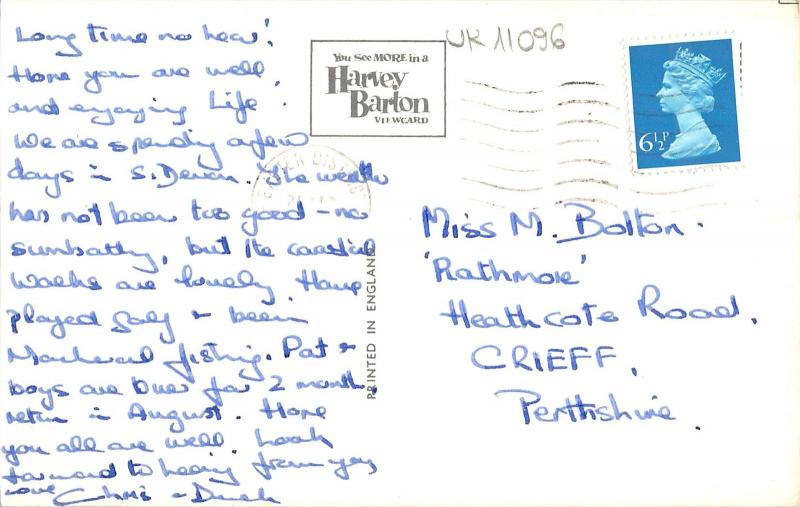 Long time no hear!
Hope you are well
and enjoying life.
We are spending a few
days in S. Devon. The weather
has not been too good - no
sunbathing, but the coastal
walks are lovely. Have
played golf & been
Mackerel fishing. Pat &
boys are over for 2 months
return in August. Hope
you all are well. Look
forward to hearing from you
love Chris &
You See MORE in a
Harvey
Barton
VIEWCARD
UK 11096
6½P
PRINTED IN ENGLAND
Miss M. Bolton.
'Rathmore'
Heathcote Road,
CRIEFF,
Perthshire.